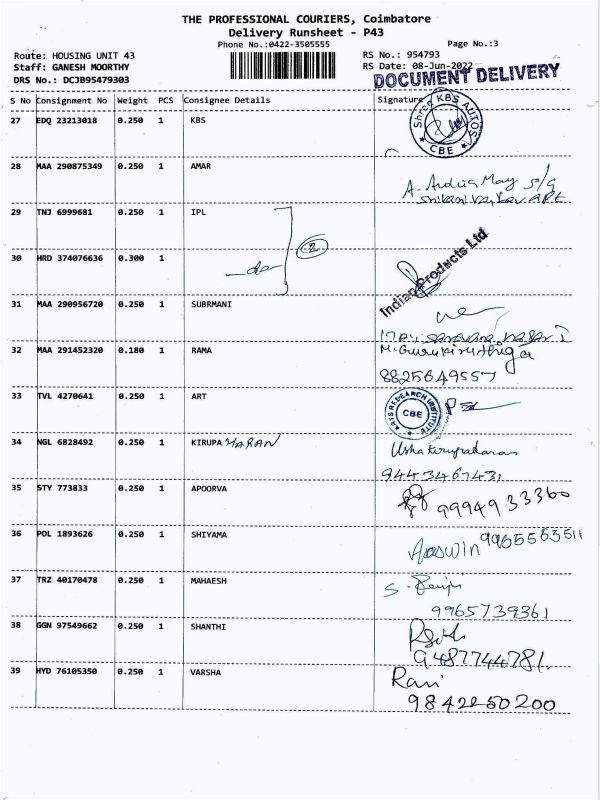 THE PROFESSIONAL COURIERS, Coimbatore
Delivery Runsheet - P43
Phone No.:0422-3505555
Page No.:3
Route: HOUSING UNIT 43
RS No.: 954793
Staff: GANESH MOORTHY
RS Date: 08-Jun-2022
DRS No.: DCJB95479303
DOCUMENT DELIVERY
S No Consignment No Weight PCS Consignee Details Signature
27 EDQ 23213018 0.250 1 KBS
Shree KBS AUTOS
* CBE *
28 MAA 290875349 0.250 1 AMAR
29 TNJ 6999681 0.250 1 IPL
2
30 HRD 374076636 0.300 1 do
Indian Products Ltd
31 MAA 290956720 0.250 1 SUBRMANI
32 MAA 291452320 0.180 1 RAMA
8825649557
33 TVL 4270641 0.250 1 ART
RESEARCH INSTITUTE
CBE
34 NGL 6828492 0.250 1 KIRUPA HARAN
Usha Kirupadaran
9443467431
35 STY 773833 0.250 1 APOORVA
9994933360
36 POL 1893626 0.250 1 SHIYAMA
Aaswin 9965563511
37 TRZ 40170478 0.250 1 MAHAESH
9965739361
38 GGN 97549662 0.250 1 SHANTHI
9487744781
39 HYD 76105350 0.250 1 VARSHA
Ravi
9842250200